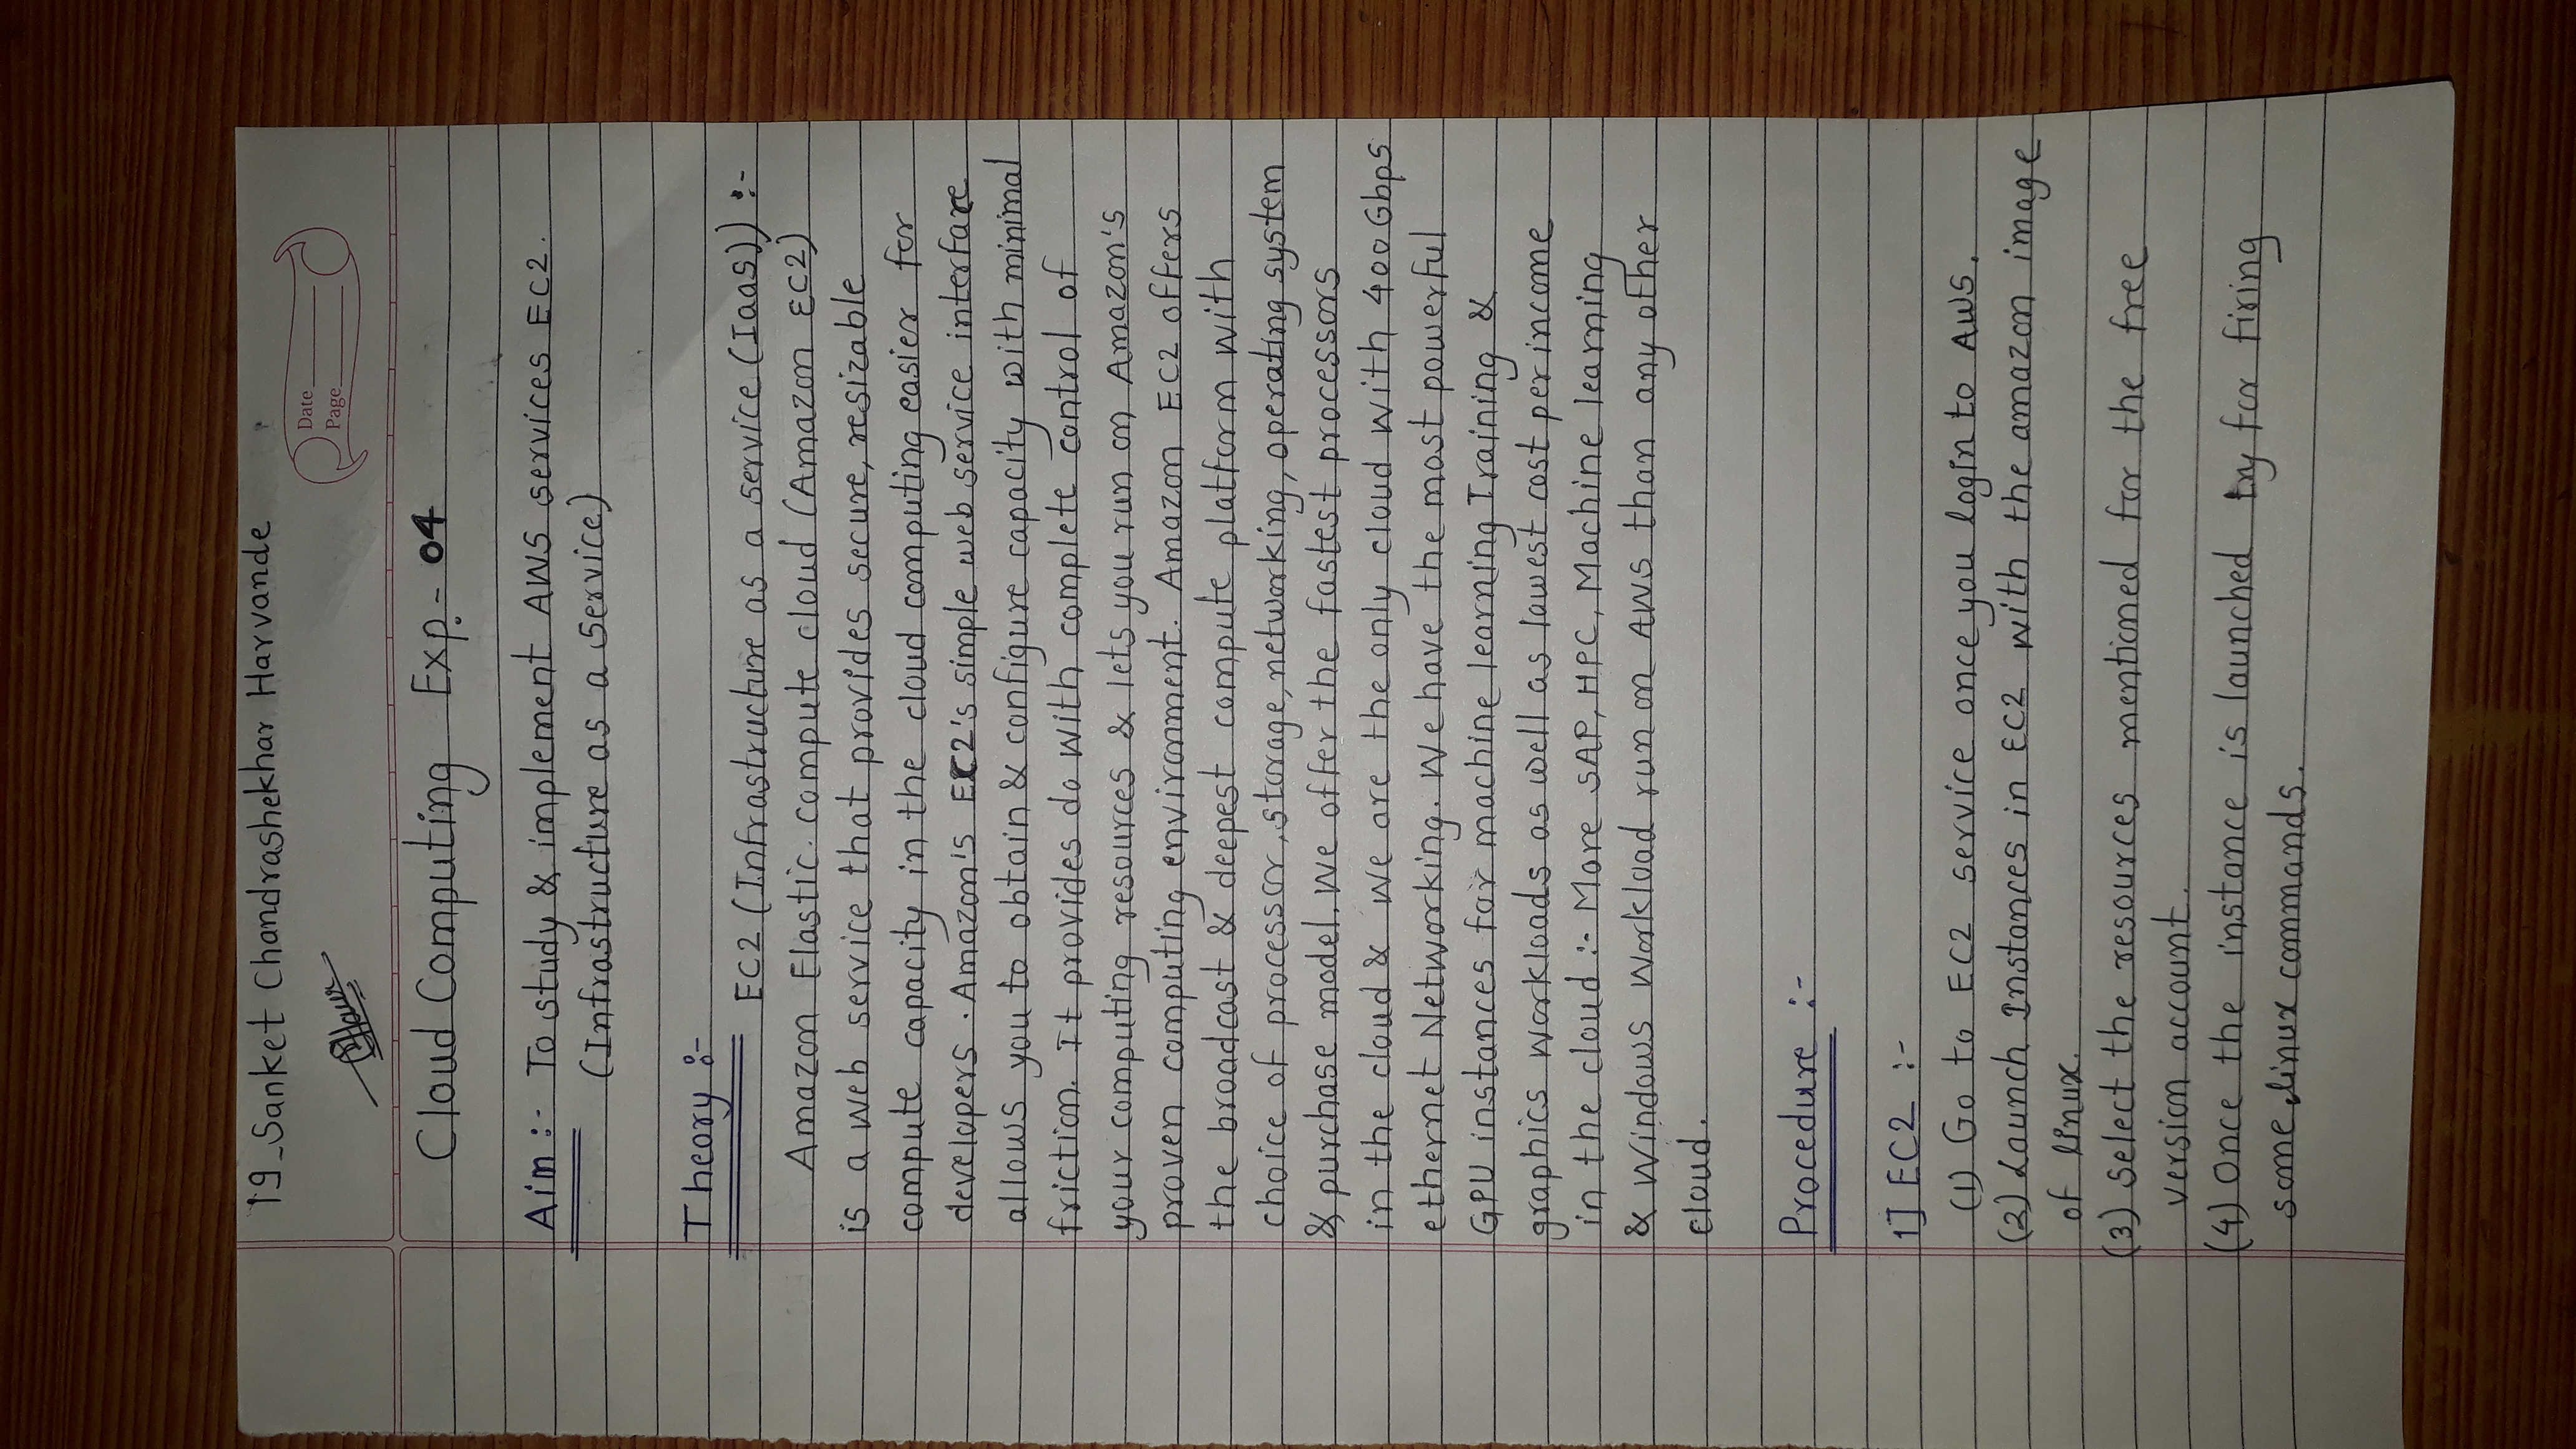 19_Sanket Chandrashekhar Harvande
Date
Page
Cloud Computing Exp.- 04
Aim :- To study & implement AWS services EC2.
(Infrastructure as a Service)
Theory :-
EC2 (Infrastructure as a service (IaaS)) :-
Amazon Elastic. compute cloud (Amazon EC2)
is a web service that provides secure, resizable
compute capacity in the cloud computing easier for
developers. Amazon's EC2's simple web service interface
allows you to obtain & configure capacity with minimal
friction. It provides do with complete control of
your computing resources & lets you run on Amazon's
proven computing environment. Amazon EC2 offers
the broadcast & deepest compute platform with
choice of processor, storage, networking, operating system
& purchase model. We offer the fastest processors
in the cloud & we are the only cloud with 400 Gbps
ethernet Networking. We have the most powerful
GPU instances for machine learning Training &
graphics workloads as well as lowest cost per income
in the cloud :- More SAP, HPC, Machine learning
& Windows Workload run on AWS than any other
cloud.
Procedure :-
1] EC2 :-
(1) Go to EC2 service once you login to AWS.
(2) Launch Instances in EC2 with the amazon image
of linux.
(3) Select the resources mentioned for the free
version account.
(4) Once the instance is launched try for firing
some linux commands.